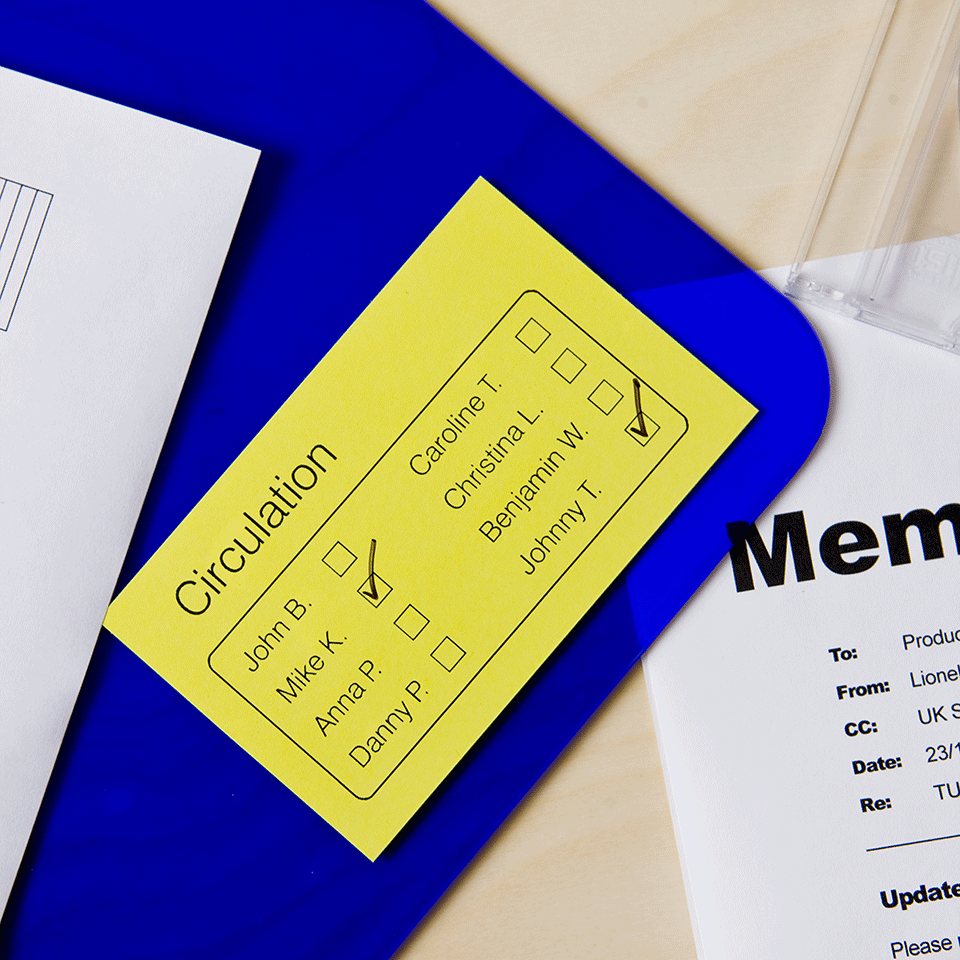 Circulation
John B.
Mike K.
Anna P.
Danny P.
Caroline T.
Christina L.
Benjamin W.
Johnny T.
Mem
To: Produc
From: Lionel
CC: UK S
Date: 23/1
Re: TU
Update
Please